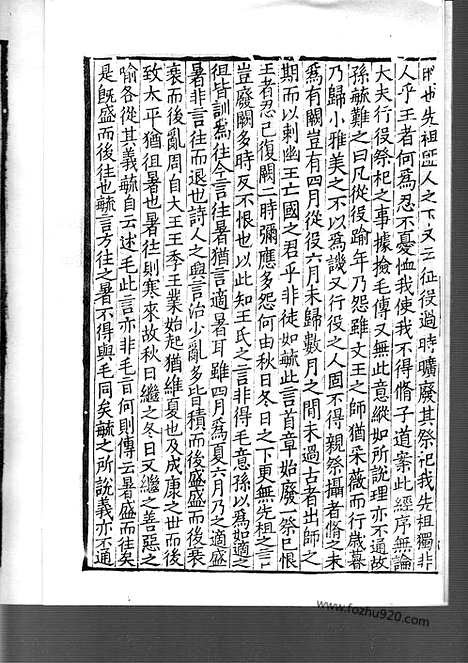 明也先祖匪人之下又云征役過時曠廢其祭祀我先祖獨非
人乎王者何為忍不憂恤我使我不得脩子道案此經序無論
大夫行役祭祀之事據撿毛傳又無此意縱如所說理亦不通故
孫毓難之曰凡從役踰年乃怨雖文王之師猶采薇而行歲暮
乃歸小雅美之不以為譏又行役之人固不得親祭攝者脩之未
為有闕豈有四月從役六月未歸數月之間未過古者出師之
期而以刺幽王亡國之君乎非徒如毓此言首章始廢一祭已恨
王者忍己復闕二時彌應多怨何由秋日冬日之下更無先祖之言
豈廢闕多時反不恨也以此知王氏之言非得毛意孫以為如適之
徂皆訓為往今言往暑猶言適暑耳雖四月為夏六月乃之適盛
暑非言往而退也詩人之興言治少亂多皆積而後盛盛而後
衰而後亂周自大王王季王業始起猶維夏也及成康之世而後
致太平猶徂暑也暑往則寒來故秋日繼之冬日又繼之善惡之
喻各從其義毓自云述毛此言亦非毛旨何則傳云暑盛而往矣
是既盛而後往也毓言方往之暑不得與毛同矣毓之所說義亦不通
www.fozhu920.com